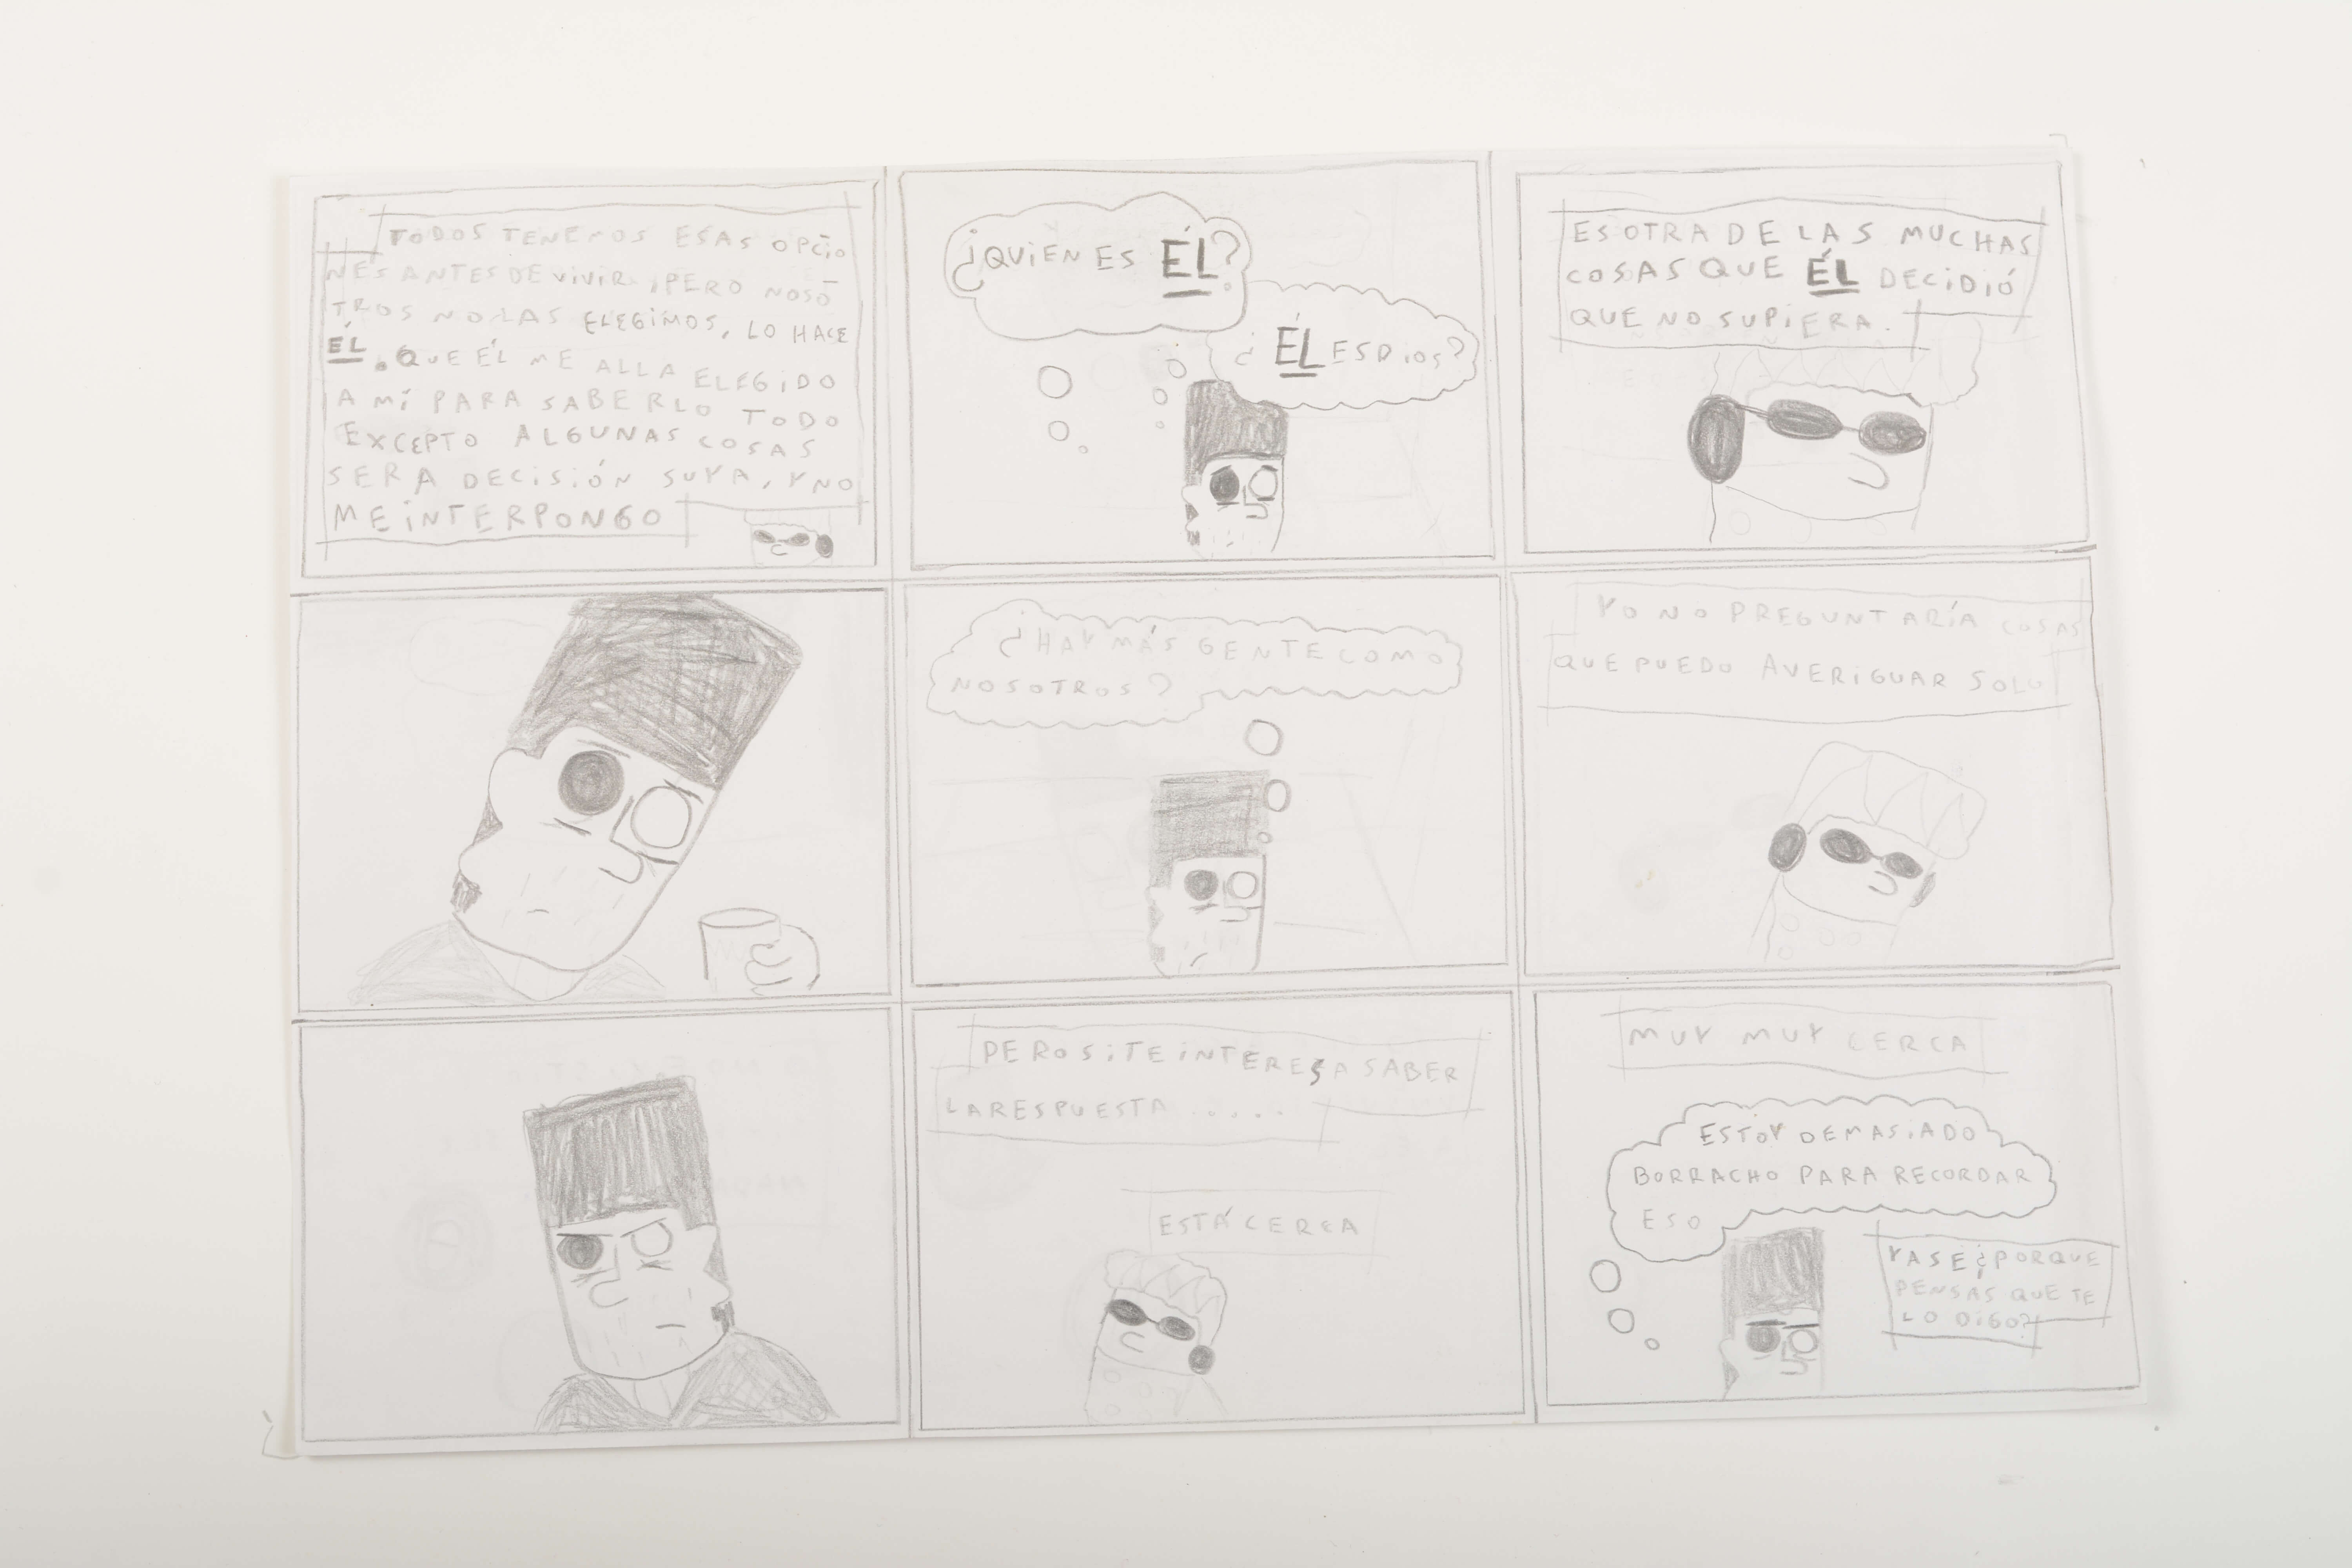 TODOS TENEMOS ESAS OPCIO
NES ANTES DE VIVIR, PERO NOSO
TROS NO LAS ELEGIMOS, LO HACE
ÉL. QUE ÉL ME ALLA ELEGIDO
A MÍ PARA SABERLO TODO
EXCEPTO ALGUNAS COSAS
SERA DECISIÓN SUYA, Y NO
ME INTERPONGO
¿QUIEN ES ÉL?
¿ÉL ES DIOS?
ES OTRA DE LAS MUCHAS
COSAS QUE ÉL DECIDIÓ
QUE NO SUPIERA.
¿HAY MÁS GENTE COMO
NOSOTROS?
YO NO PREGUNTARÍA COSAS
QUE PUEDO AVERIGUAR SOLO
PERO SI TE INTERESA SABER
LA RESPUESTA .....
ESTÁ CERCA
MUY MUY CERCA
ESTOY DEMASIADO
BORRACHO PARA RECORDAR
ESO
YA SE ¿PORQUE
PENSAS QUE TE
LO DIGO?